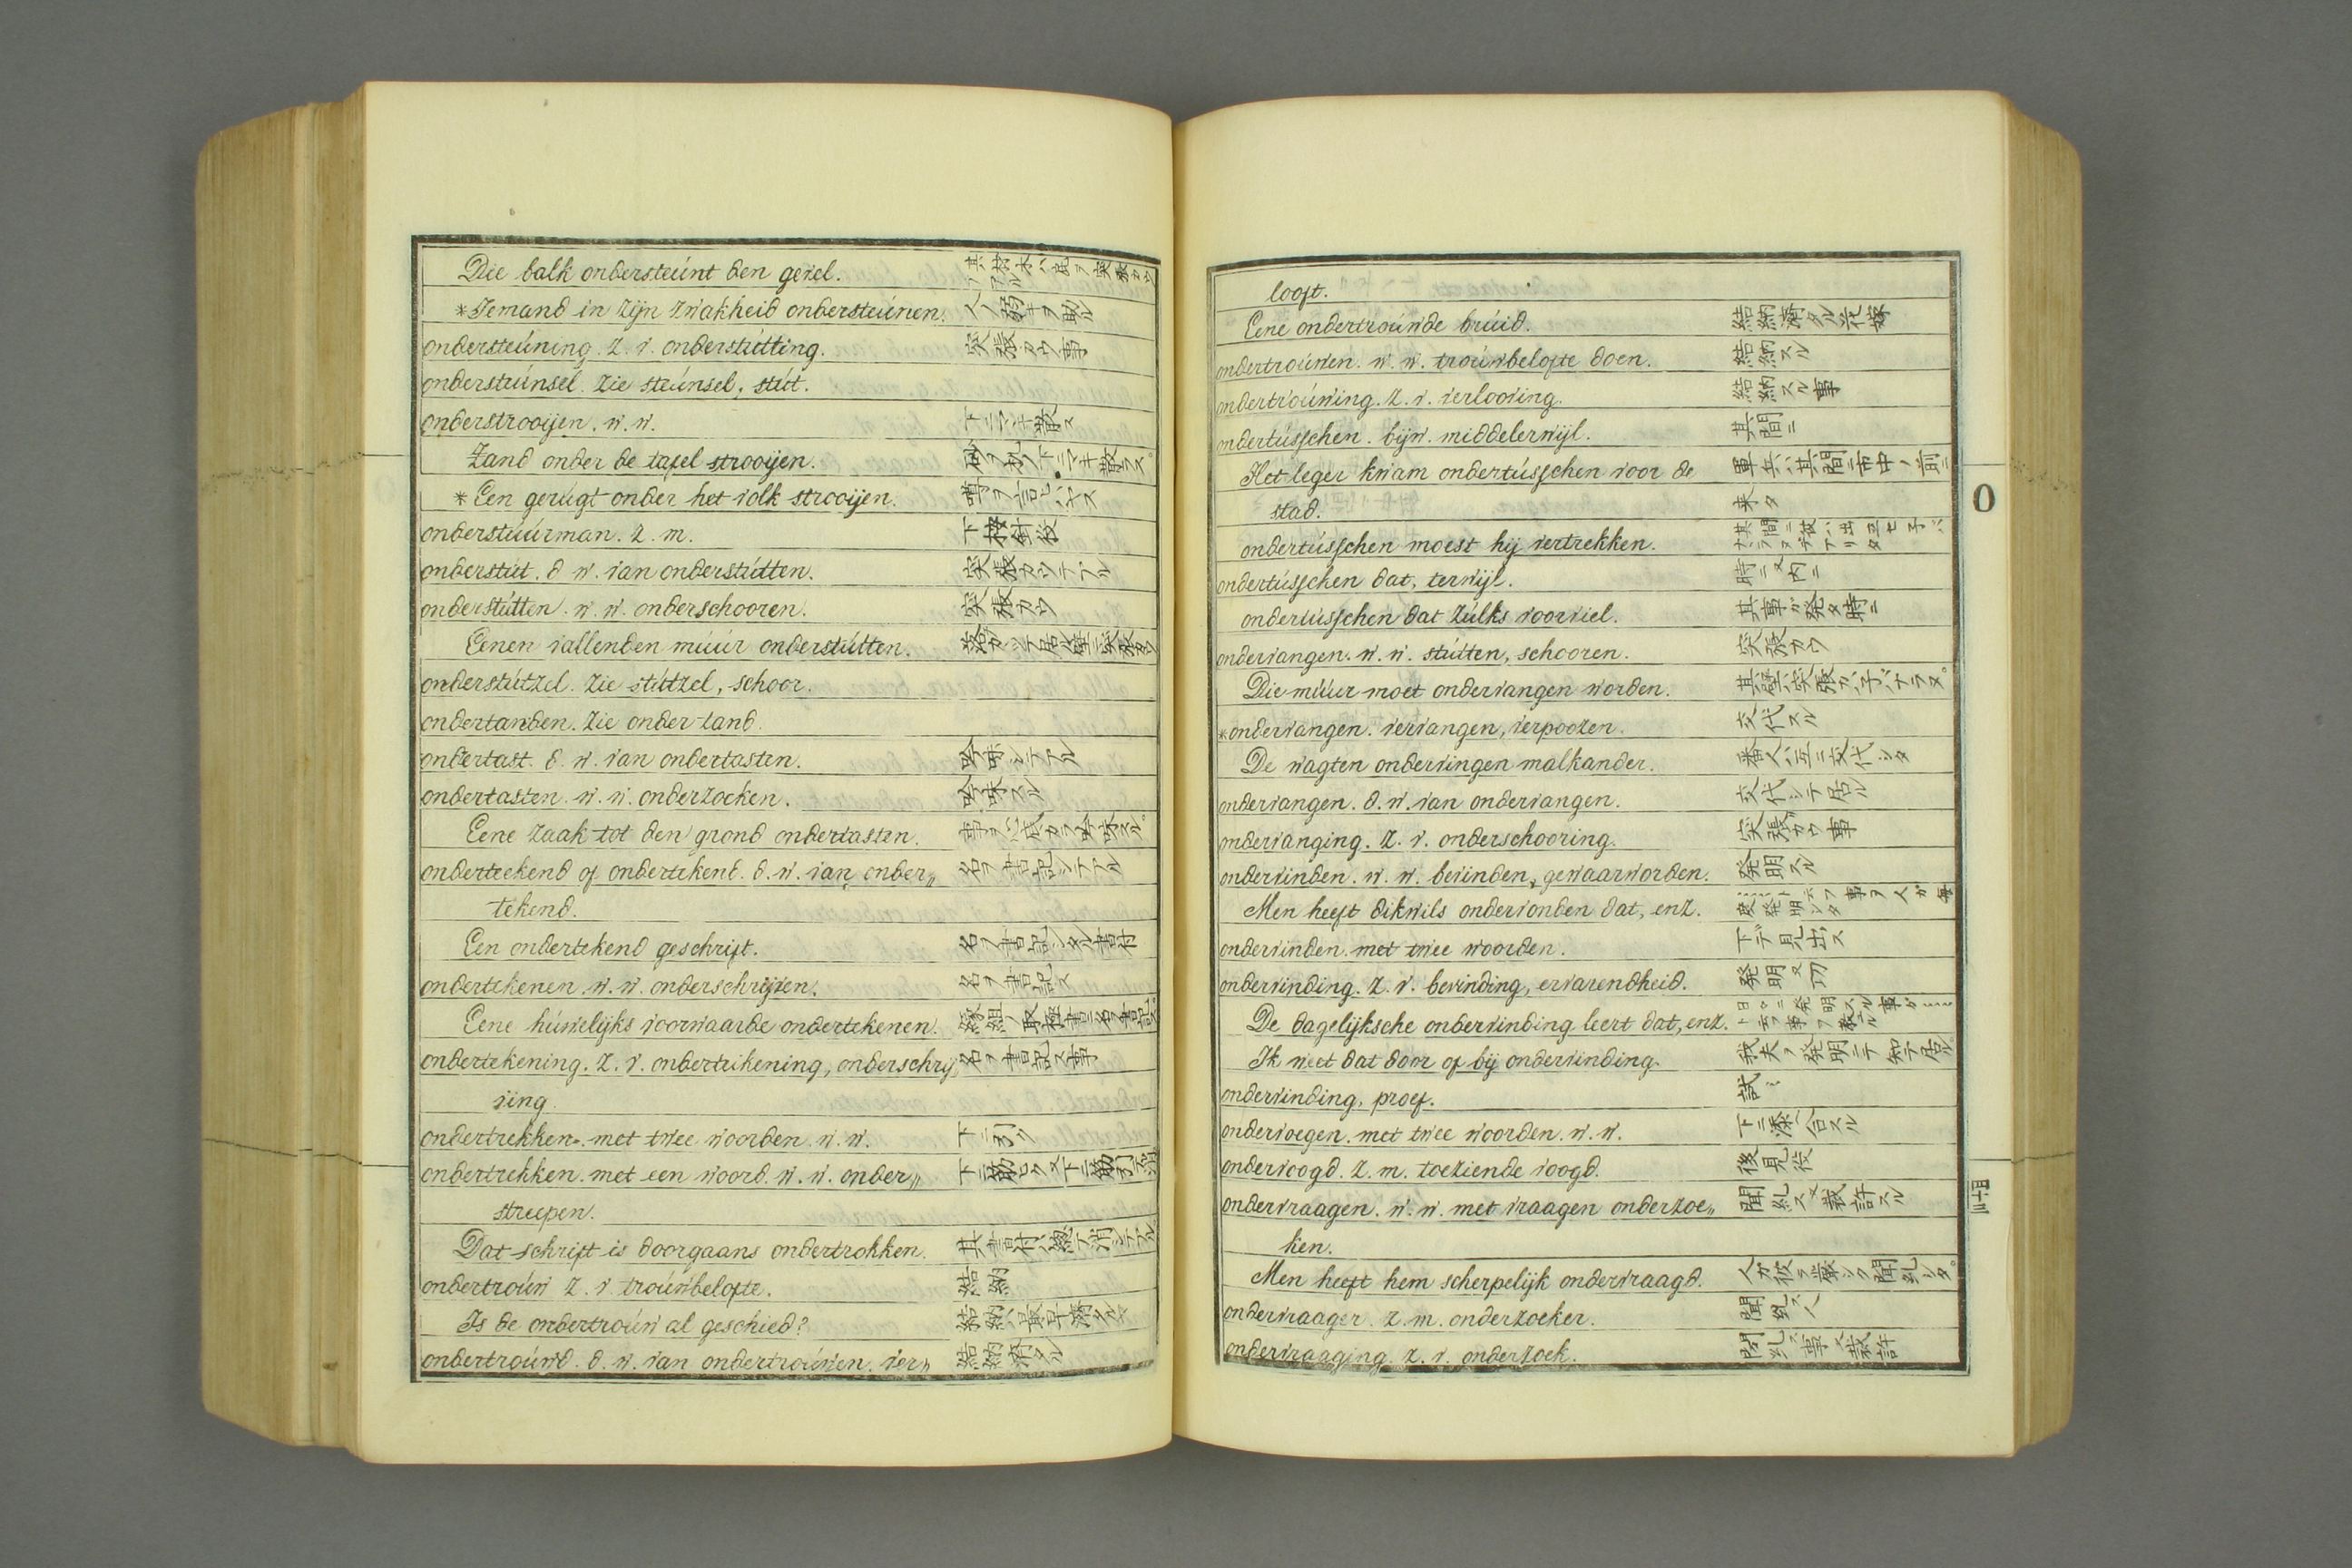 Die balk ondersteúnt den gevel.
*Iemand in zijn zwakheid ondersteúnen. 人ノ弱キヲ助ル
ondersteúning. z. v. onderstútting. 突張カウ事
ondersteúnsel. zie steúnsel, stút.
onderstrooijen. w. w. 下ニマキ散ス
Zand onder de tafel strooijen. 砂ヲ机ノ下ニマキ散ラス。
*Een gerúgt onder het volk strooijen. 噂ヲ言ヒハヤス
onderstúúrman. z. m. 下按針役
onderstút. d. w. van onderstútten. 突張カウテアル
onderstútten. w. w. onderschooren. 突張カウ
Eenen vallenden múúr onderstútten.
onderstútzel. zie stútzel, schoor.
ondertanden. zie onder-tand.
ondertast. d. w. van ondertasten. 吟味シテアル
ondertasten. w. w. onderzoeken. 吟味スル
Eene zaak tot den grond ondertasten.
onderteekend of ondertekend. d. w. van onder〃 名ヲ書記シテアル
tekend.
Een ondertekend geschrift. 名ヲ書記シタル書付
ondertekenen. w. w. onderschrijven. 名ヲ書記ス
Eene húwelijks voorwaarde ondertekenen. 縁組ノ取極書ニ名ヲ書記ス。
ondertekening. z. v. onderteikening, onderschrij 名ヲ書記ス事
ving.
ondertrekken. met twee woorden. w. w. 下ニ引ク
ondertrekken. met een woord. w. w. onder〃
streepen.
Dat schrift is doorgaans ondertrokken.
ondertroúw z. v troúwbelofte. 結納
Is de ondertroúw al geschied? 結納ハ最早済タルヤ
ondertroúwd. d. w. van ondertroúwen. ver〃 結納済タル
looft.
Eene ondertroúwde brúid. 結納済タル花嫁
ondertroúwen. w. w. troúwbelofte doen. 結納スル
ondertroúwing. z. v. verlooving. 結納スル事
ondertússchen. bijw. middelerwijl. 其間ニ
Het leger kwam ondertússchen voor de 軍兵ハ其間ニ市中ノ前ニ
stad. 来タ
ondertússchen moest hij vertrekken.
ondertússchen dat, terwijl. 時ニ又内ニ
ondertússchen dat zúlks voorviel. 其事ガ発タ時ニ
ondervangen. w. w. stútten, schooren. 突張カウ
Die múúr moet ondervangen worden. 其壁ハ突張カハ子バナラヌ。
*ondervangen. vervangen, verpoozen. 交代スル
De wagten ondervingen malkander. 番人ハ互ニ交代シタ
ondervangen. d. w. van ondervangen. 交代シテ居ル
ondervanging. z. v. onderschooring. 突張カウ事
ondervinden. w. w. bevinden, gewaarworden. 発明スル
Men heeft dikwils ondervonden dat, enz.
ondervinden. met twee woorden. 下デ見出ス
ondervinding. z. v. bevinding, ervarendheid.
De dagelijksche ondervinding leert dat, enz.
Ik weet dat door of bij ondervinding. 我夫ヲ発明ニテ知テ居ル
ondervinding, proef. 試ミ
ondervoegen. met twee woorden. w. w. 下ニ添ヘ合スル
ondervoogd. z. m. toeziende voogd. 後見役
ondervraagen. w. w. met vraagen onderzoe〃 聞糺ス又裁許スル
ken.
Men heeft hem scherpelijk ondervraagd. 人ガ彼ヲ厳シク聞糺シタ。
ondervraager. z. m. onderzoeker. 聞糺ス人
ondervraaging. z. v. onderzoek. 聞糺ス事又裁許
O